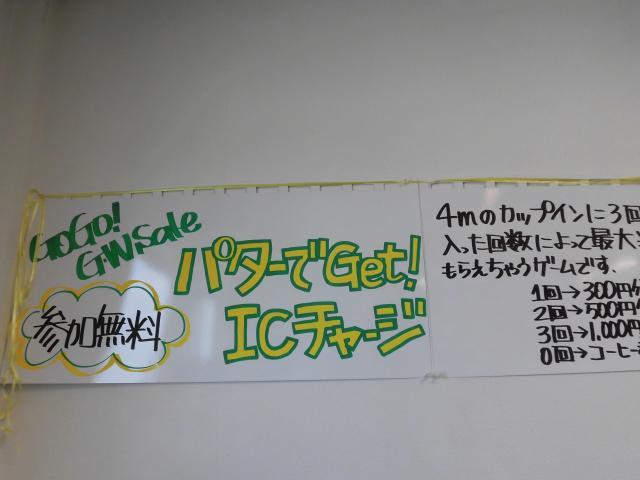 GoGo!
G.W.Sale
パターでGet!
ICチャージ
参加無料
4mのカップインに3回
入った回数によって最大
もらえちゃうゲームです.
1回→300円
2回→500円
3回→1,000円
0回→コーヒー